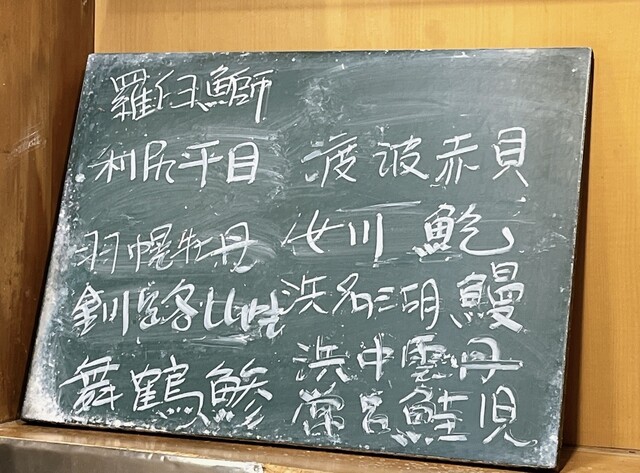 羅臼鰤
利尻平目
羽幌牡丹
釧路
舞鶴鯵
渡波赤貝
女川鮑
浜名湖鰻
浜中雲丹
常呂鮭児